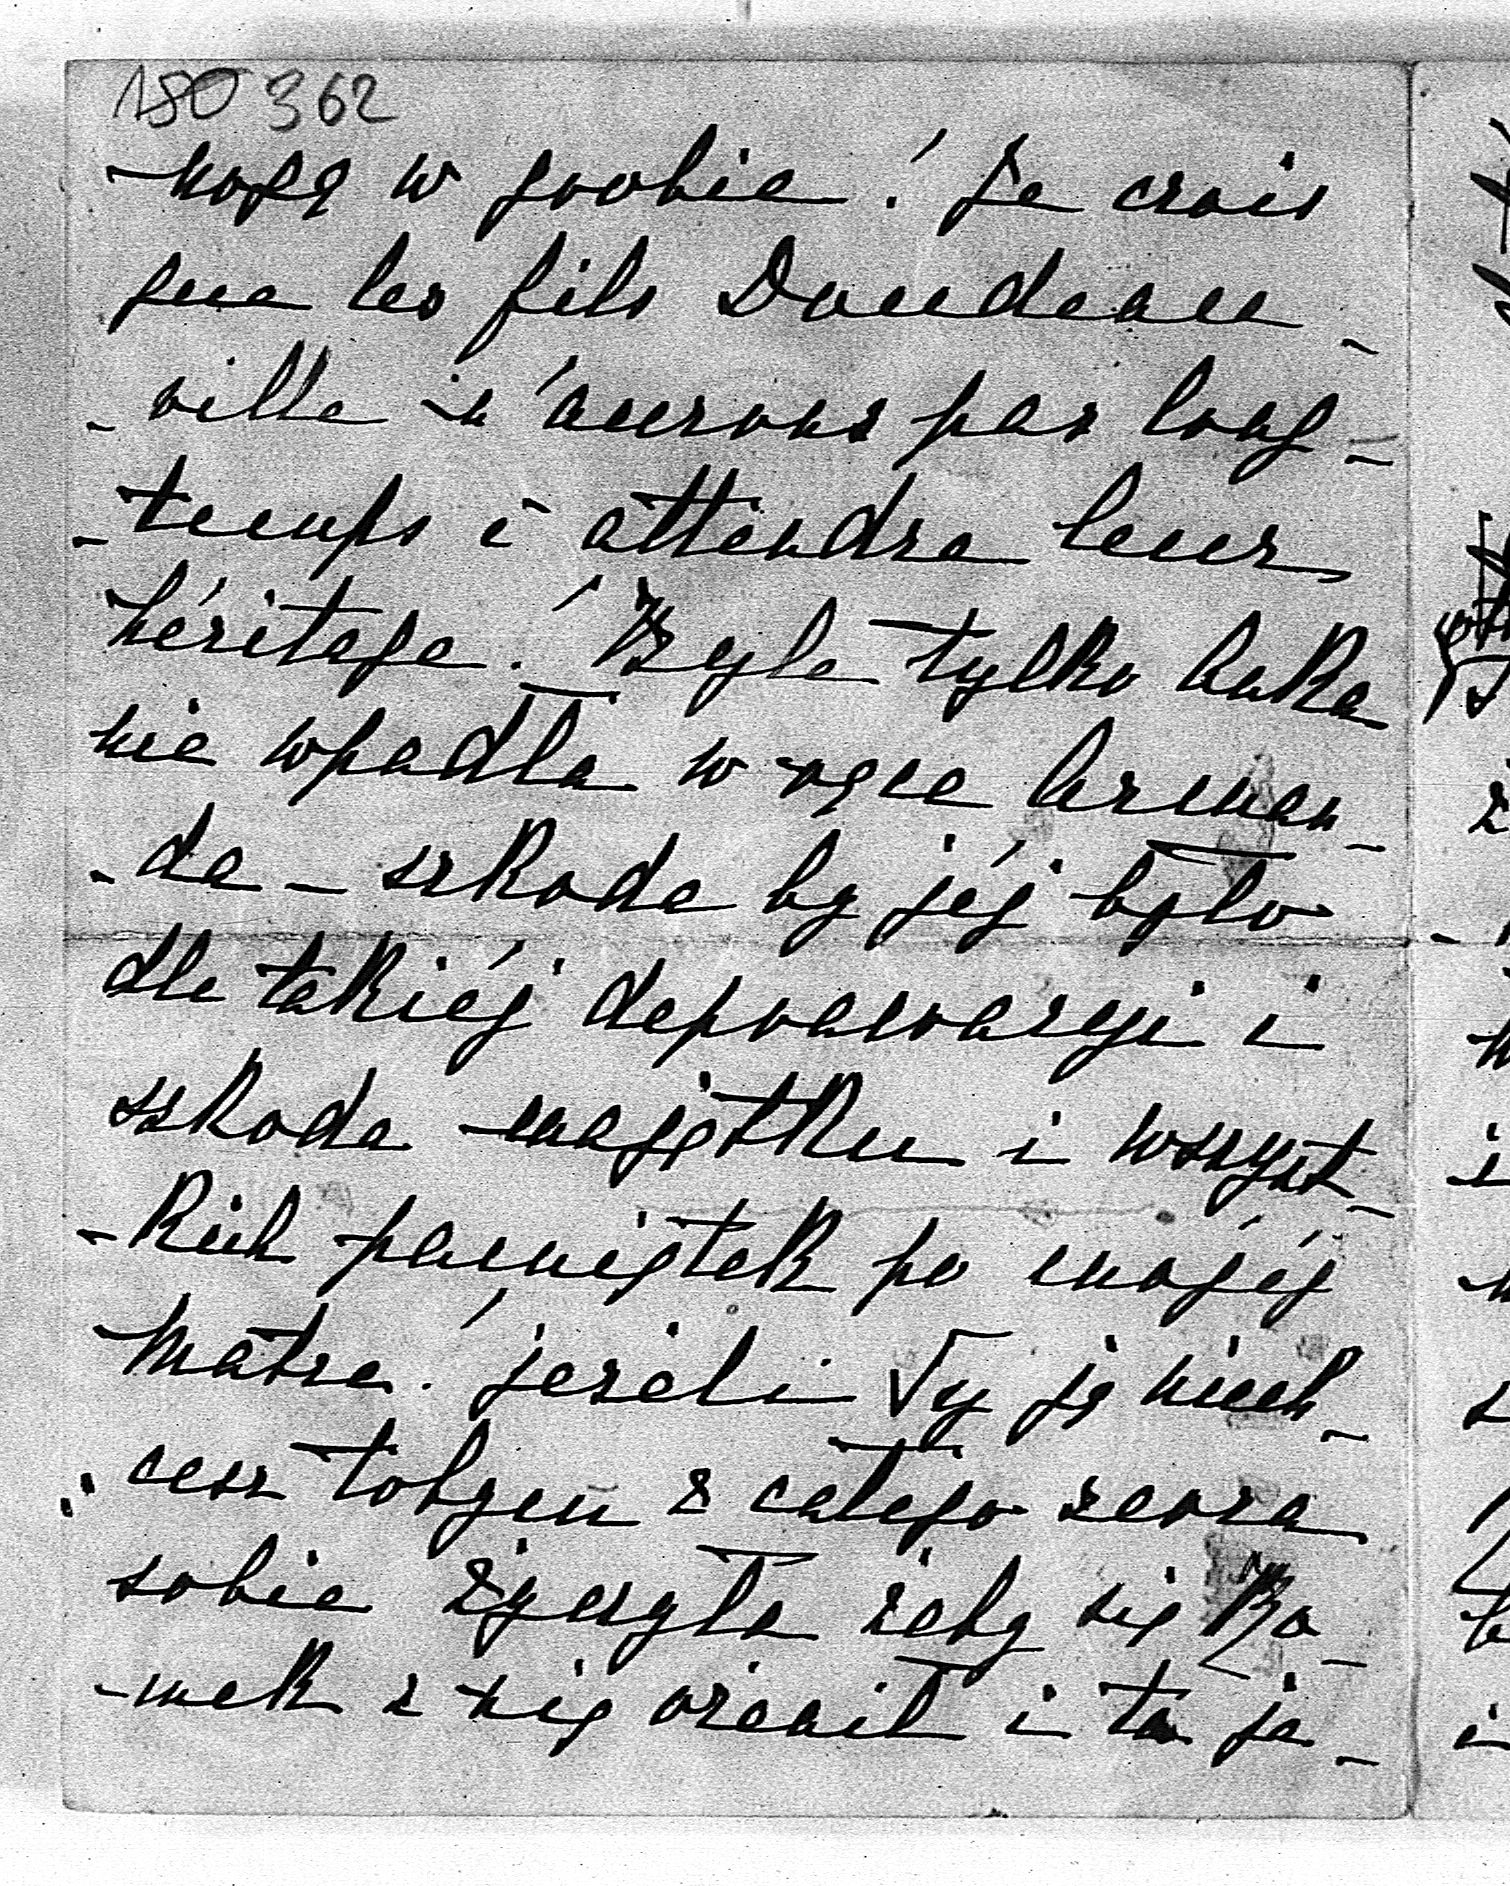 150 362
-nogą w grobie! Je crois
que les fils Doudeau-
-ville n'auront pas long-
-temps à attendre leur
héritage! Byle tylko Luka
nie wpadła w ręce Arman-
-da – szkoda by jéj było
dla takiéj deprawacyi i
szkoda majątku i wszyst-
-kich pamiątek po mojéj
Matce! jeżeli Ty jej niech-
-cesz tobym z całego serca
sobie życzyła żeby się Ro-
-mek z nią ożenił i ta ja-